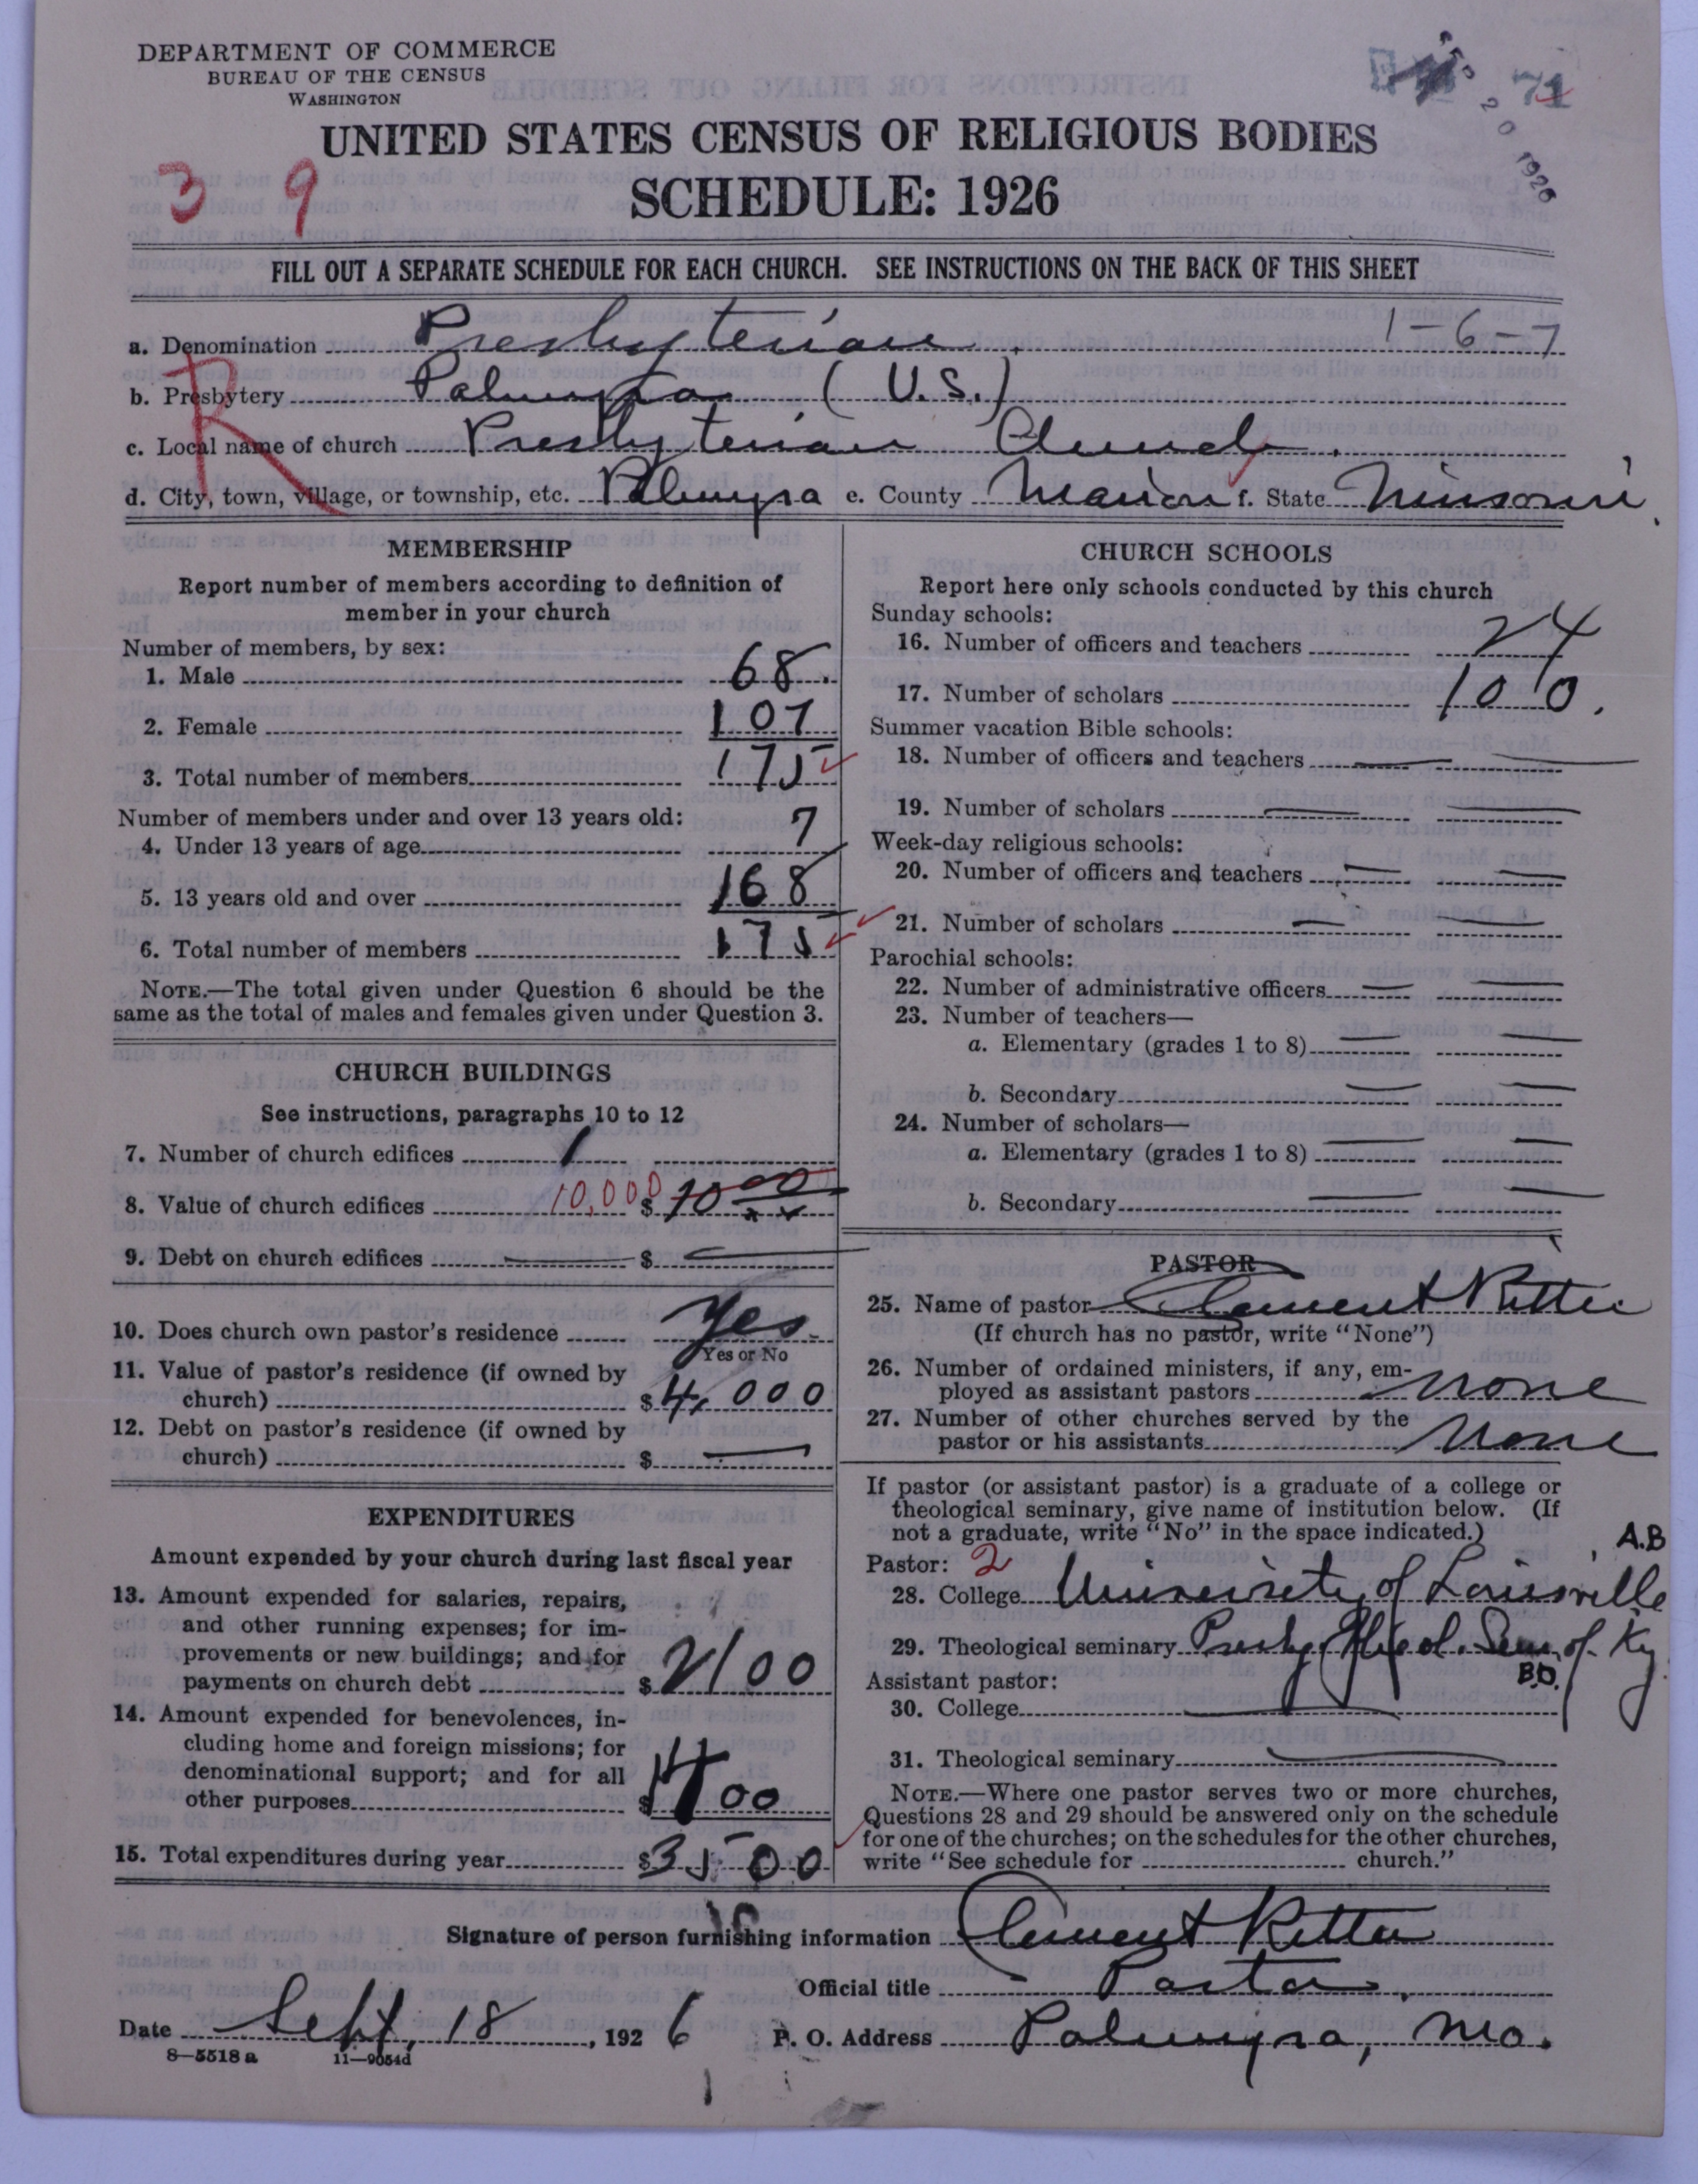 DEPARTMENT OF COMMERCE
BUREAU OF THE CENSUS
WASHINGTON
71
20 1926
UNITED STATES CENSUS OF RELIGIOUS BODIES
3 9
SCHEDULE: 1926
FILL OUT A SEPARATE SCHEDULE FOR EACH CHURCH. SEE INSTRUCTIONS ON THE BACK OF THIS SHEET
a. Denomination Presbyterian. 1-6-7
b. Presbytery Palmyra (U.S.)
R
c. Local name of church Presbyterian Church.
d. City, town, village, or township, etc. Palmyra e. County Marion f. State Missouri.
MEMBERSHIP
Report number of members according to definition of
member in your church
Number of members, by sex:
1. Male 68.
2. Female 107
3. Total number of members 175
Number of members under and over 13 years old:
4. Under 13 years of age 7
5. 13 years old and over 168
6. Total number of members 175
NOTE.—The total given under Question 6 should be the
same as the total of males and females given under Question 3.
CHURCH BUILDINGS
See instructions, paragraphs 10 to 12
7. Number of church edifices 1
8. Value of church edifices 10,000 $ 10 00
9. Debt on church edifices — $ —
10. Does church own pastor's residence Yes.
Yes or No
11. Value of pastor's residence (if owned by
church) $ 4,000
12. Debt on pastor's residence (if owned by
church) $ —
EXPENDITURES
Amount expended by your church during last fiscal year
13. Amount expended for salaries, repairs,
and other running expenses; for im-
provements or new buildings; and for
payments on church debt $ 2100
14. Amount expended for benevolences, in-
cluding home and foreign missions; for
denominational support; and for all
other purposes $ 1400
15. Total expenditures during year $ 3500
CHURCH SCHOOLS
Report here only schools conducted by this church
Sunday schools:
16. Number of officers and teachers 24
17. Number of scholars 100.
Summer vacation Bible schools:
18. Number of officers and teachers — —
19. Number of scholars — —
Week-day religious schools:
20. Number of officers and teachers — —
21. Number of scholars — —
Parochial schools:
22. Number of administrative officers — —
23. Number of teachers—
a. Elementary (grades 1 to 8) — —
b. Secondary — —
24. Number of scholars—
a. Elementary (grades 1 to 8) — —
b. Secondary — —
PASTOR
25. Name of pastor Clement Ritter
(If church has no pastor, write "None")
26. Number of ordained ministers, if any, em-
ployed as assistant pastors None
27. Number of other churches served by the
pastor or his assistants None
If pastor (or assistant pastor) is a graduate of a college or
theological seminary, give name of institution below. (If
not a graduate, write "No" in the space indicated.)
A.B
Pastor: 2
28. College University of Louisville
29. Theological seminary Presby. Theol. Sem. of Ky.
B.D.
Assistant pastor:
30. College —
31. Theological seminary —
NOTE.—Where one pastor serves two or more churches,
Questions 28 and 29 should be answered only on the schedule
for one of the churches; on the schedules for the other churches,
write "See schedule for church."
Signature of person furnishing information Clement Ritter
Official title Pastor.
Date Sept. 18, 1926 P. O. Address Palmyra, Mo.
8—5518 a 11—9054d